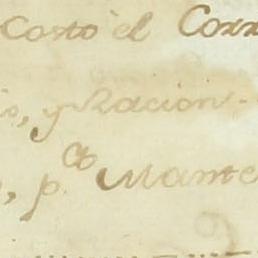 Costo el Corr
s, y Racion.
p.ª Mante